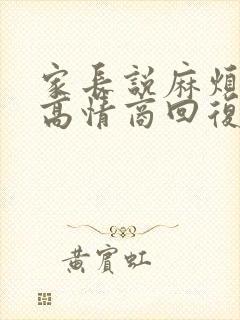 家長説麻煩
高情商回復
黃賓虹